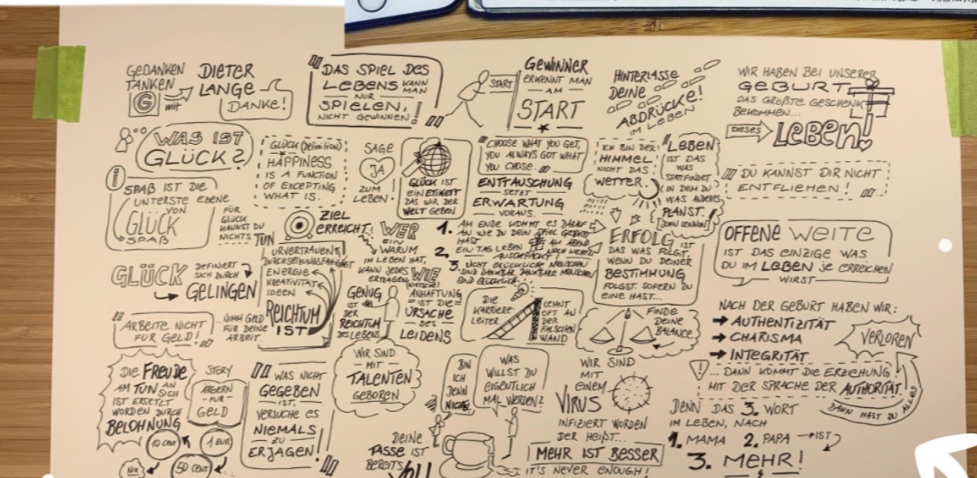 GEDANKEN
TANKEN
G
mit
DIETER
LANGE
DANKE!
DAS SPIEL DES
LEBENS KANN
MAN
NUR
SPIELEN,
NICHT GEWINNEN!
START
GEWINNER
ERKENNT MAN
AM
START
HINTERLASSE
DEINE
ABDRÜCKE!
IM LEBEN
WIR HABEN BEI UNSERER
GEBURT
DAS GRÖßTE GESCHENK
BEKOMMEN...
DIESES
LEBEN!
WAS IST
GLÜCK?
GLÜCK (Definition)
HAPPINESS
IS A FUNCTION
OF EXCEPTING
WHAT IS.
SAGE
JA
ZUM
LEBEN!
GLÜCK IST
EIN ETIKETT
DAS WIR DER
WELT GEBEN
CHOOSE WHAT YOU GET,
YOU ALWAYS GOT WHAT
YOU CHOSE.
ENTTÄUSCHUNG
SETZT
ERWARTUNG
VORAUS.
ICH BIN DER
HIMMEL
NICHT DAS
WETTER.
"LEBEN
IST DAS
WAS
STATTFINDET
IN DEM DU
WAS ANDERES
PLANST."
(JOHN LENNON)
DU KANNST DIR NICHT
ENTFLIEHEN!
SPAß IST DIE
UNTERSTE EBENE
VON
GLÜCK
SPAß
FÜR
GLÜCK
KANNST DU
NICHTS TUN
ZIEL
ERREICHT!
WER
EIN
WARUM
IM LEBEN HAT,
KANN JEDES
WIE
ERTRAGEN
1. AM ENDE KOMMT ES DARAUF
AN WIE DU DEIN SPIEL GESPIELT
HAST
2. EIN TAG LEBEN
3. NICHT GLÜCKLICHE MENSCHEN
SIND DANKBAR, DANKBARE MENSCHEN
SIND GLÜCKLICH
ERFOLG IST
DAS WAS FOLGT
WENN DU DEINER
BESTIMMUNG
FOLGST. SOFERN DU
EINE HAST...
OFFENE WEITE
IST DAS EINZIGE WAS
DU IM LEBEN JE ERREICHEN
WIRST
GLÜCK
DEFINIERT
SICH DURCH
GELINGEN
URVERTRAUEN
ENERGIE
KREATIVITÄT
IDEEN
REICHTUM
IST
GENUG
IST
DER
REICHTUM
DES LEBENS
ANHAFTUNG
IST DIE
URSACHE
DES
LEIDENS
DIE
KARRIERE-
LEITER
LEHNT
OFT AN
DER
FALSCHEN
WAND
FINDE
DEINE
BALANCE
NACH DER GEBURT HABEN WIR:
→ AUTHENTIZITÄT
→ CHARISMA
→ INTEGRITÄT
VERLOREN
ARBEITE NICHT
FÜR GELD!
NIMM GELD
FÜR DEINE
ARBEIT.
... DANN KOMMT DIE ERZIEHUNG
MIT DER SPRACHE DER AUTHORITÄT.
DIE FREUDE
AM TUN AN
SICH
IST ERSETZT
WORDEN DURCH
BELOHNUNG
10 CENT
50 CENT
1 EUR
STORY
ÄRGERN
FÜR
GELD
WAS NICHT
GEGEBEN
IST,
VERSUCHE ES
NIEMALS
ZU
ERJAGEN!
WIR SIND
MIT
TALENTEN
GEBOREN
DEINE
TASSE IST
BEREITS
BIN
ICH
DENN
NICHTS
WAS
WILLST DU
EIGENTLICH
MAL WERDEN?
WIR SIND
MIT
EINEM
VIRUS
INFIZIERT WORDEN
DER HEIßT...
MEHR IST BESSER
IT'S NEVER ENOUGH!
DENN DAS 3. WORT
IM LEBEN, NACH
1. MAMA 2. PAPA → IST
3. MEHR!